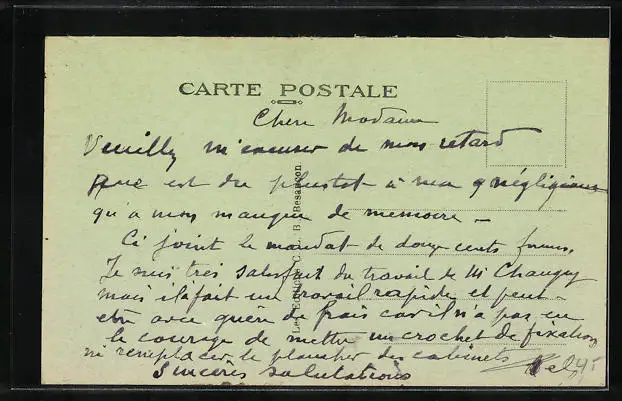 CARTE POSTALE
Chere Madame
Veuilly m'excuser de mon retard
que est du plustot a ma negligience
qu'a mon manque de memoire -
Ci joint le mandat de douze cents francs.
Je suis très satisfait du travail de M Changey
mais il a fait un travail rapide et peut-
etre avec guere de frais car il n'a pas eu
le courage de mettre un crochet de fixation
ni remplacer le plancher des cabinets
Sinceres salutations
Les Editions C. L. B. Besançon